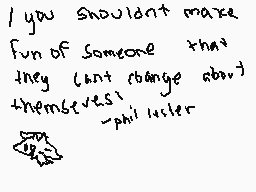 I you shouldnt make
fun of someone that
they cant change about
themselves!
-phil lester